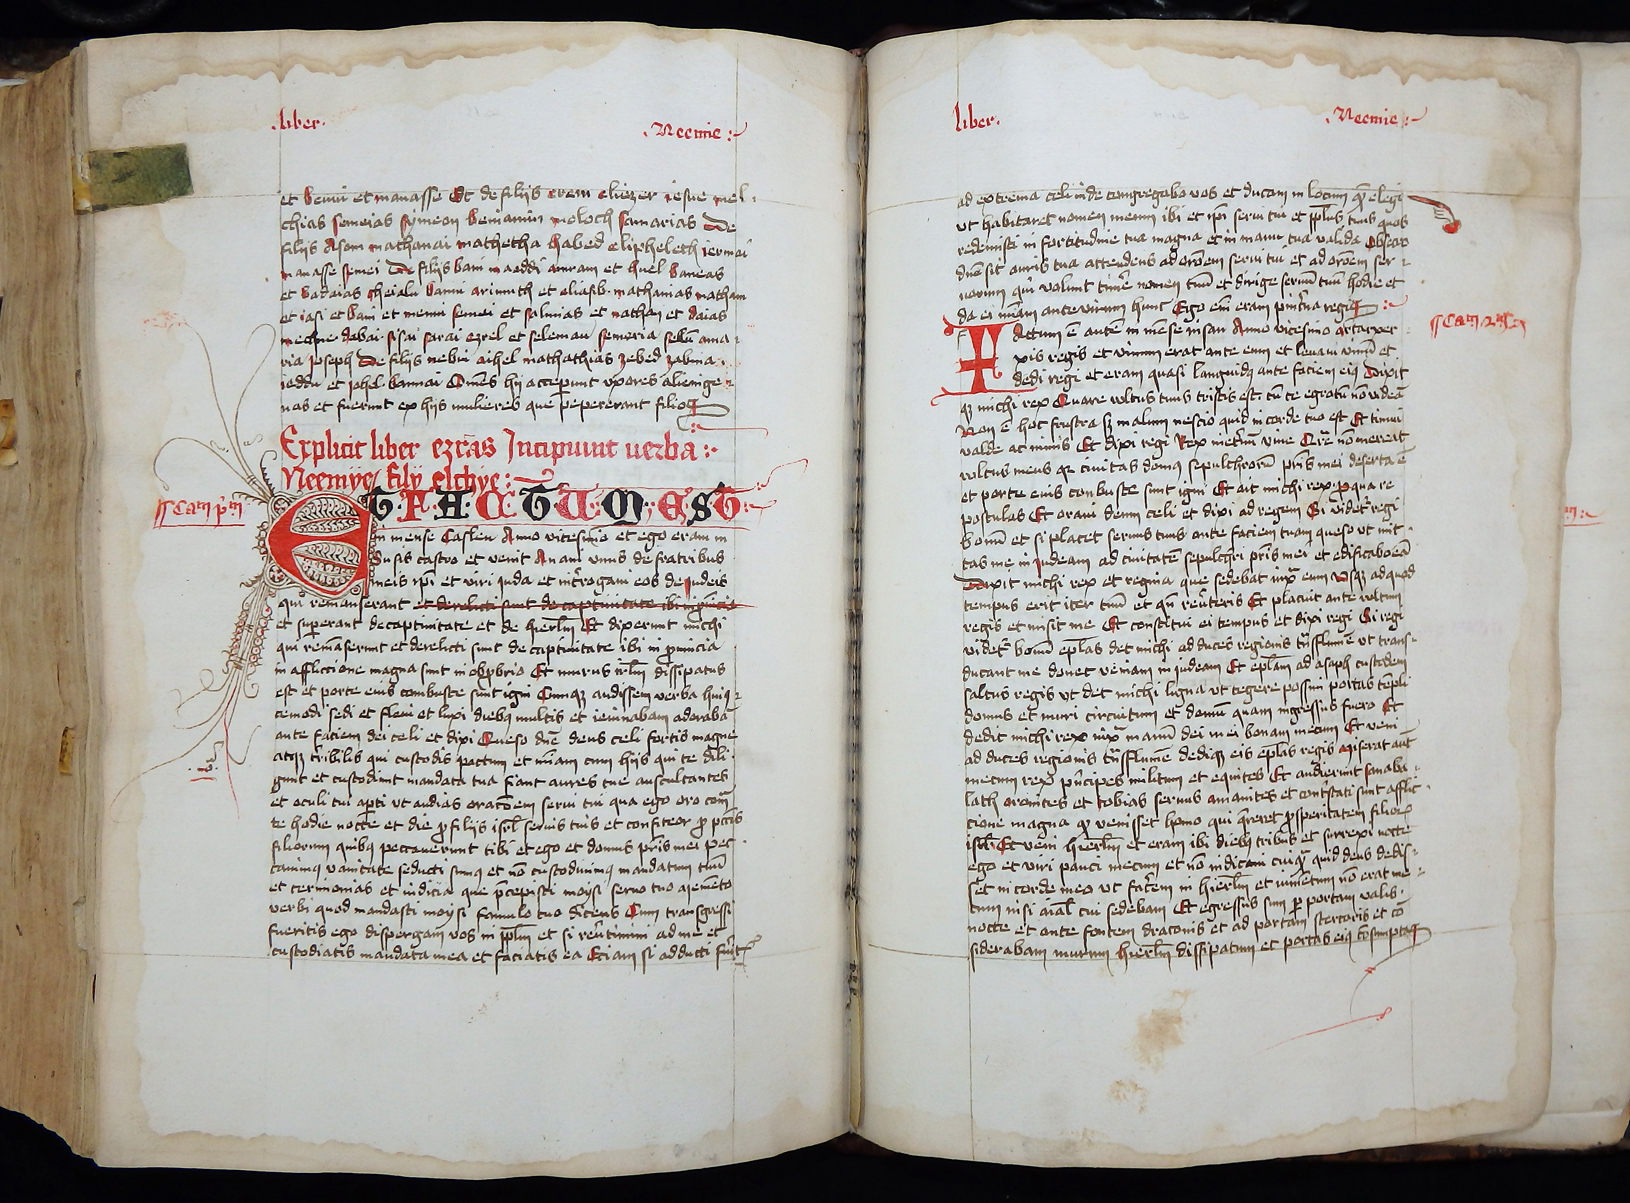 .liber.
.Neemie:~
et benni et manasse Et de filijs erem eliezer iesue mel
chias semeias symeon beniamin moloch samarias De
filijs Asom mathanai mathetha zabed elipheleth iermai
manasse semei De filijs bani maaddi amram et huel baneas
et badaias cheialu bannu arimuth et eliasib mathanias mathan
et iasi et bani et mennu semei et salmias et nathan et daias
mechne dabai sisai sarai ezrel et selemau semeria sellū ama
ria Joseph De filijs nebui aihel mathathias zebed zabina
ieddu et iohel bannai Om̄es hij acceperunt vxores alienige
nas et fuerunt ex hijs mulieres que pepererant filios
Explicit liber ezras Incipiunt uerba:~
Neemye filij elchye:~
Cam pm
ET FACTUM EST
in mense Casleu Anno vicesimo et ego eram in
Susis castro et venit Anani vnus de fratribus
meis ip̄i et viri iuda et int̄rogaui eos de iudeis
qui remanserant et derelicti sunt de captiuitate ibi in ꝓuincia
et superant de captiuitate et de hierl̄m Et dixerunt michi
qui remāserunt et derelicti sunt de captiuitate ibi in ꝓuincia
in afflictione magna sunt in obp̄brio Et murus irl̄m dissipatus
est et porte eius combuste sunt igni Cumqꝫ audissem verba huiꝰ
cemodi sedi et fleui et luxi diebꝫ multis et ieiunabam adoraba
ante faciem dei celi et dixi Queso dn̄e deus celi fortis magne
atqꝫ tribilis qui custodis pactum et mīam cum hijs qui te dili
gunt et custodiunt mandata tua fiant aures tue auscultantes
et oculi tui apti vt audias orac̄oem serui tui qua ego oro corā
te hodie nocte et die ꝓ filijs isrl̄ seruis tuis et confiteor ꝓ pctīs
filiorum quibꝫ peccauerunt tibi et ego et domus pr̄is mei pec
cauimꝰ vanitate seducti sumꝰ et nō custodiuimꝰ mandatum tuū
et cerimonias et iudicia que p̄cepisti moysi seruo tuo memēto
verbi quod mandasti moysi famulo tuo dicens Cum transgressi
fueritis ego dispergam vos in pplm̄ et si reūtimini ad me et
custodiatis mandata mea et faciatis ea Eciam si adducti fūit
liber.
.Neemie:~
ad extrema celi inde congregabo vos et ducam in locum qē elegi
vt habitaret nomen meum ibi et ip̄i serui tui et pplūs tuus quos
redemisti in fortitudine tua magna et in manu tua valida Obsecro
dn̄e sit auris tua attendens ad orōem serui tui et ad orōem ser
uorum qui volunt timē nomen tuū et dirige seruū tuū hodie et
da ei mīam ante virum hunc Ego em̄ eram pincerna regis
Cam 2m
Factum ē autē in mēse nisan Anno vicesimo artarxer
xis regis et vinum erat ante eum et leuaui vinū et
dedi regi et eram quasi languidꝰ ante faciem eiꝰ Dixit
qꝫ michi rex Quare vultus tuus tristis est cū te egrotū nō videā
Non ē hoc frustra sꝫ malum nescio quid in corde tuo est Et timui
valde ac nimis Et dixi regi Rex inet̄nū viue Qr̄e nō mereat
vultus meus qꝛ ciuitas domꝰ sepulchrorū pr̄is mei deserta ē
et porte euis conbuste sunt igni Et ait michi rex ꝓ qua re
postulas Et oraui deum celi et dixi ad regem Si videt̄ regi
bonū et si placet seruus tuus ante faciem tuam queso vt mit
tas me in iudeam ad ciuitatē sepulchri pr̄is mei et edificabo eā
Dixit michi rex et regina que sedebat iux̄ eum Vsqꝫ ad quod
tempus erit iter tuū et qn̄ reūteris Et placuit ante vultum
regis et misit me Et constitui ei tempus et dixi regi Si regi
videt̄ bonū epl̄as det michi ad duces regionis tn̄sflumē vt trans
ducant me donec veniam in iudeam Et epl̄am ad asaph custodem
saltus regis vt det michi ligna vt tegere possim portas tēpli
domus et muri ciuitatum et domū quam ingressus fuero Et
dedit michi rex iux̄ manū dei mei bonam mecum Et veni
ad duces regionis tn̄sflumē dediqꝫ eis epl̄as regis Miserat aūt
mecum rex p̄ncipes militum et equites Et audierunt sanaba
lath oronites et tobias seruus amanites et contristati sunt afflic
cione magna qꝫ venisset homo qui q̄reret ꝓsperitatem filioꝝ
isrl̄ Et veni hierl̄m et eram ibi diebꝫ tribus et surrexi nocte
ego et viri pauci mecum et nō indicaui cuiqꝫ quid deus dedis
set in corde meo vt facēm in hierl̄m et iumētum nō erat me
cum nisi aīal cui sedebam Et egressus sum ꝑ portam vallis
nocte et ante fontem draconis et ad portam stercoris et cō
siderabam murum hierl̄m dissipatum et portas eiꝰ cōsumptas